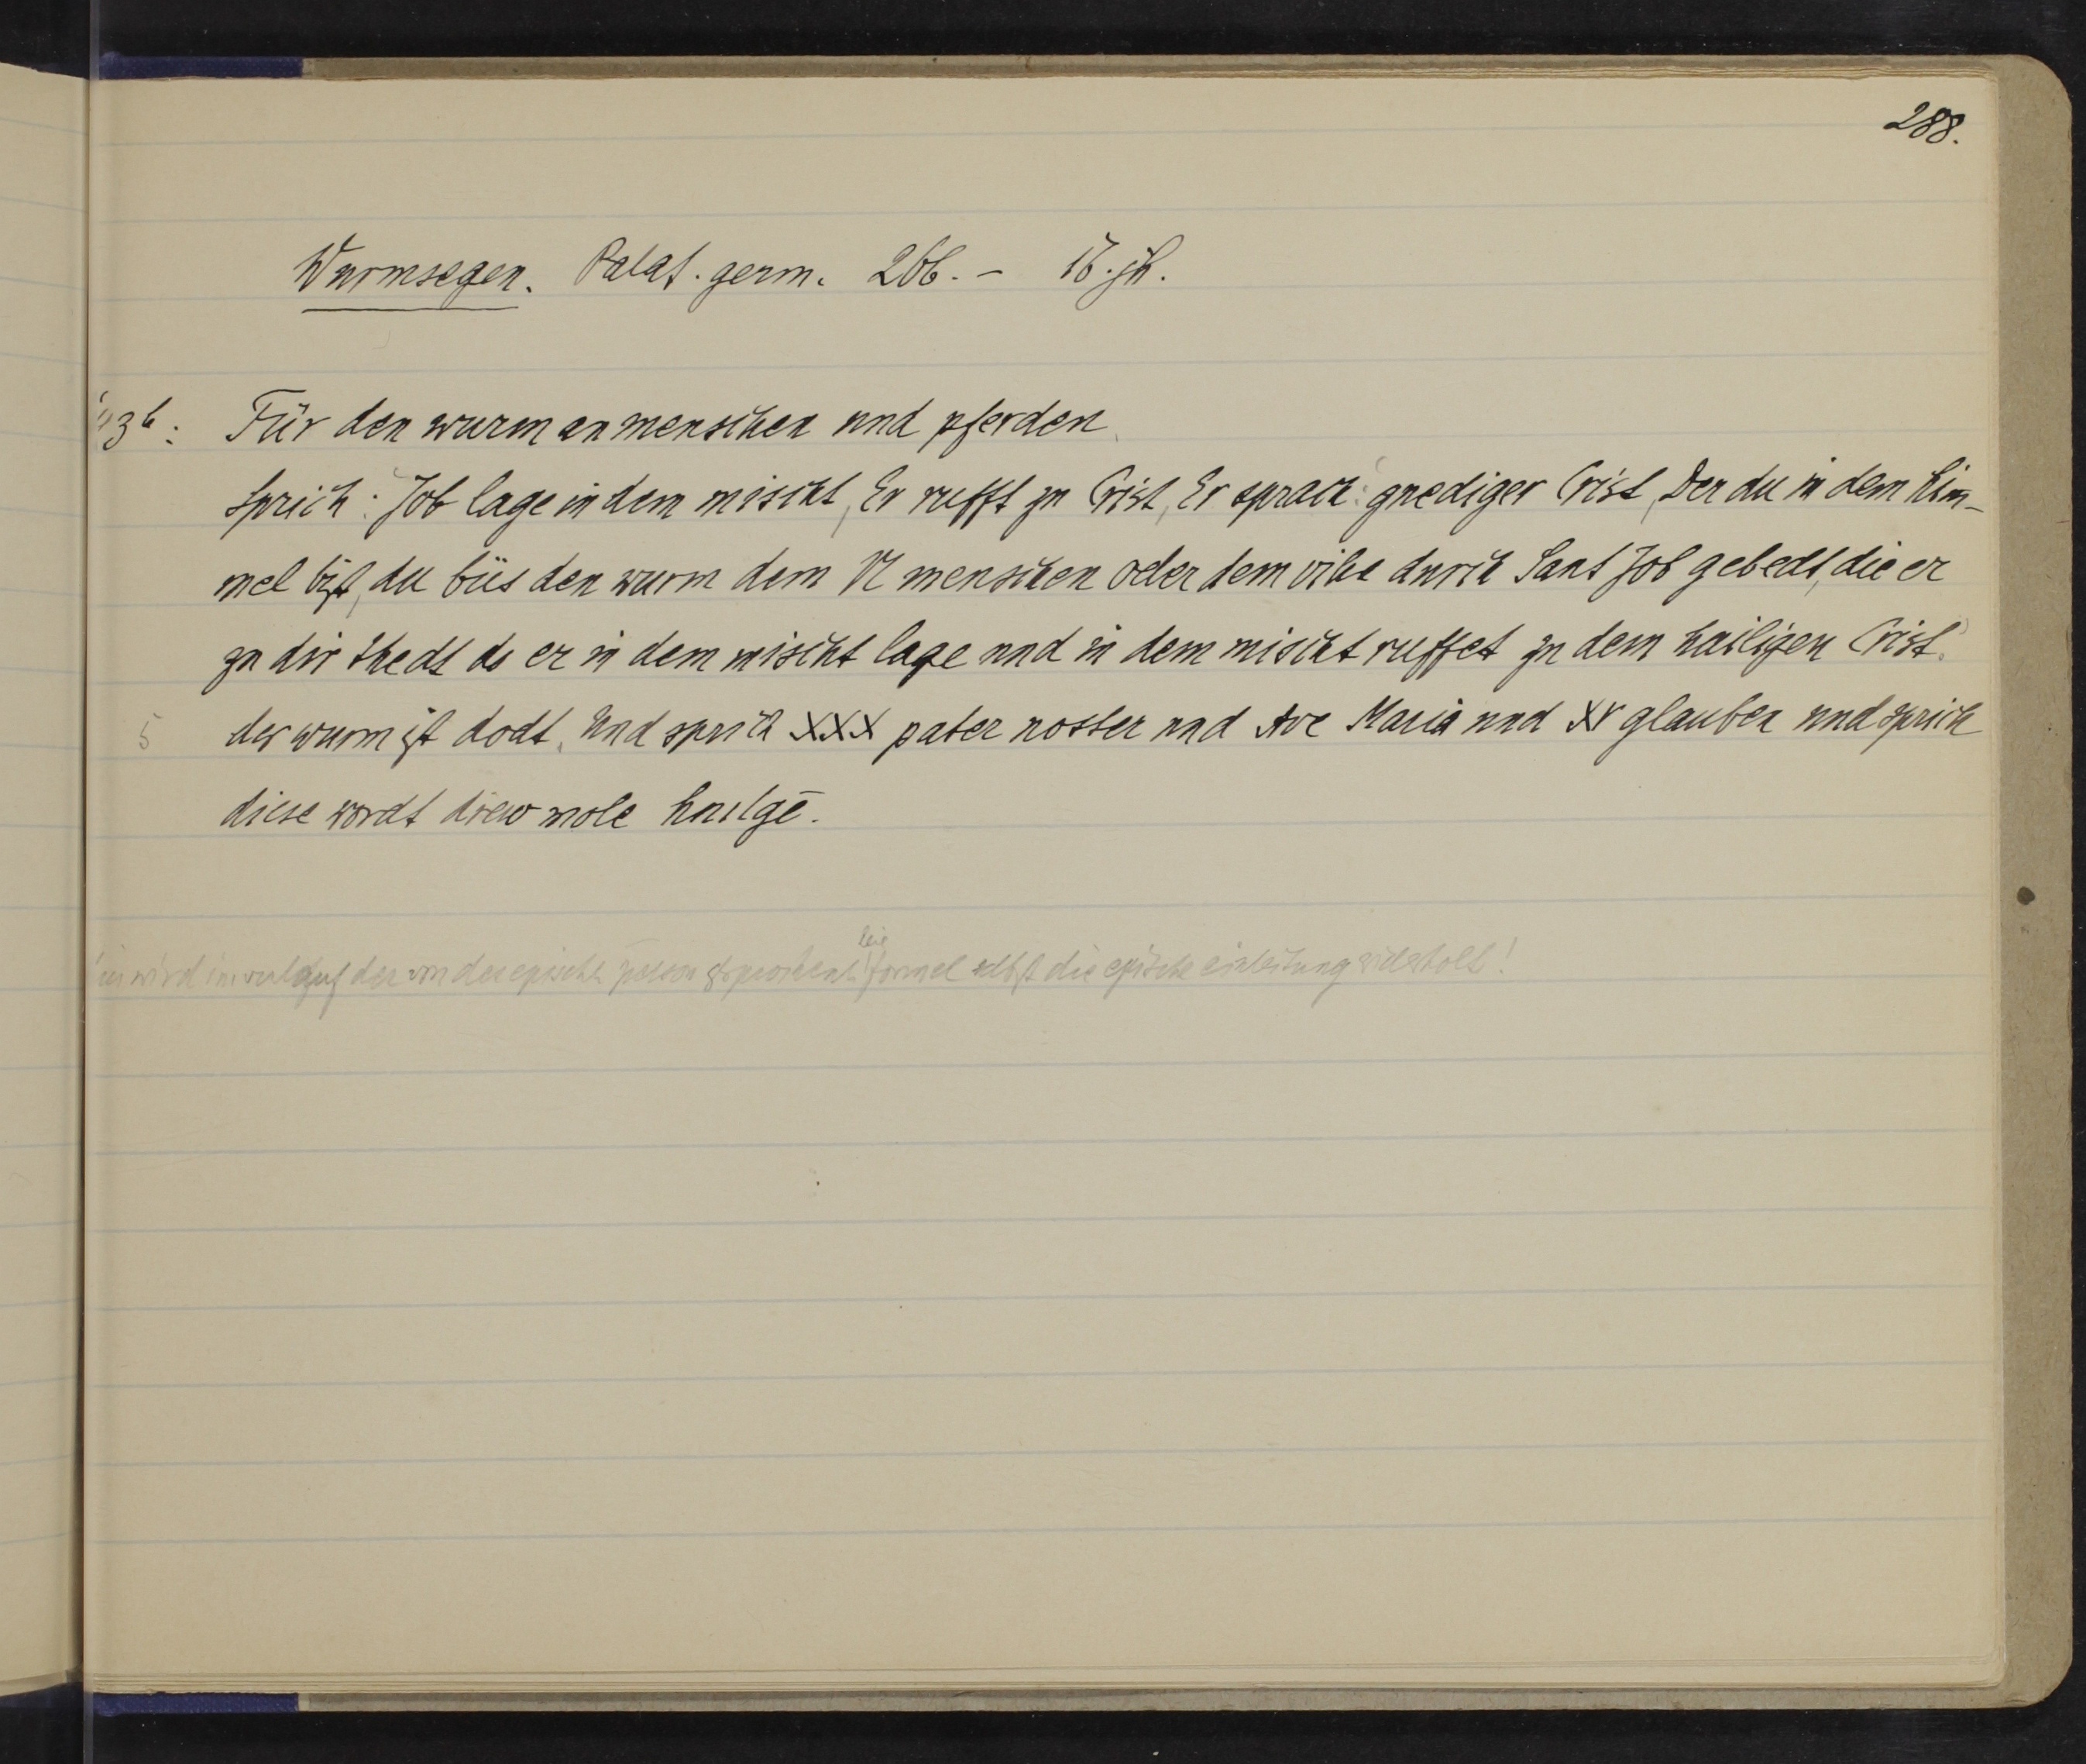 288.
Wurmsegen. Palat. germ. 266. – 16. jh.
3b: Für den wurm an menschen und pferden.
sprich: Job lage in dem mischt, Er rufft zu Crist, Er sprach: gnediger Crist, Der du in dem him-
mel bist, du büs den wurm dem N menschen oder dem vihe durch Sant Job gebedt, die er
zu dir thedt do er in dem mischt lage und in dem mischt ruffet zu dem hailigen Crist.
5 der wurm ist dodt. Und sprich XXX pater noster und Ave Maria und XV glauben und sprich
diese wordt drew mole
wird im der von der epischen person gesprochenen formel selbst die epische einleitung widerholt!